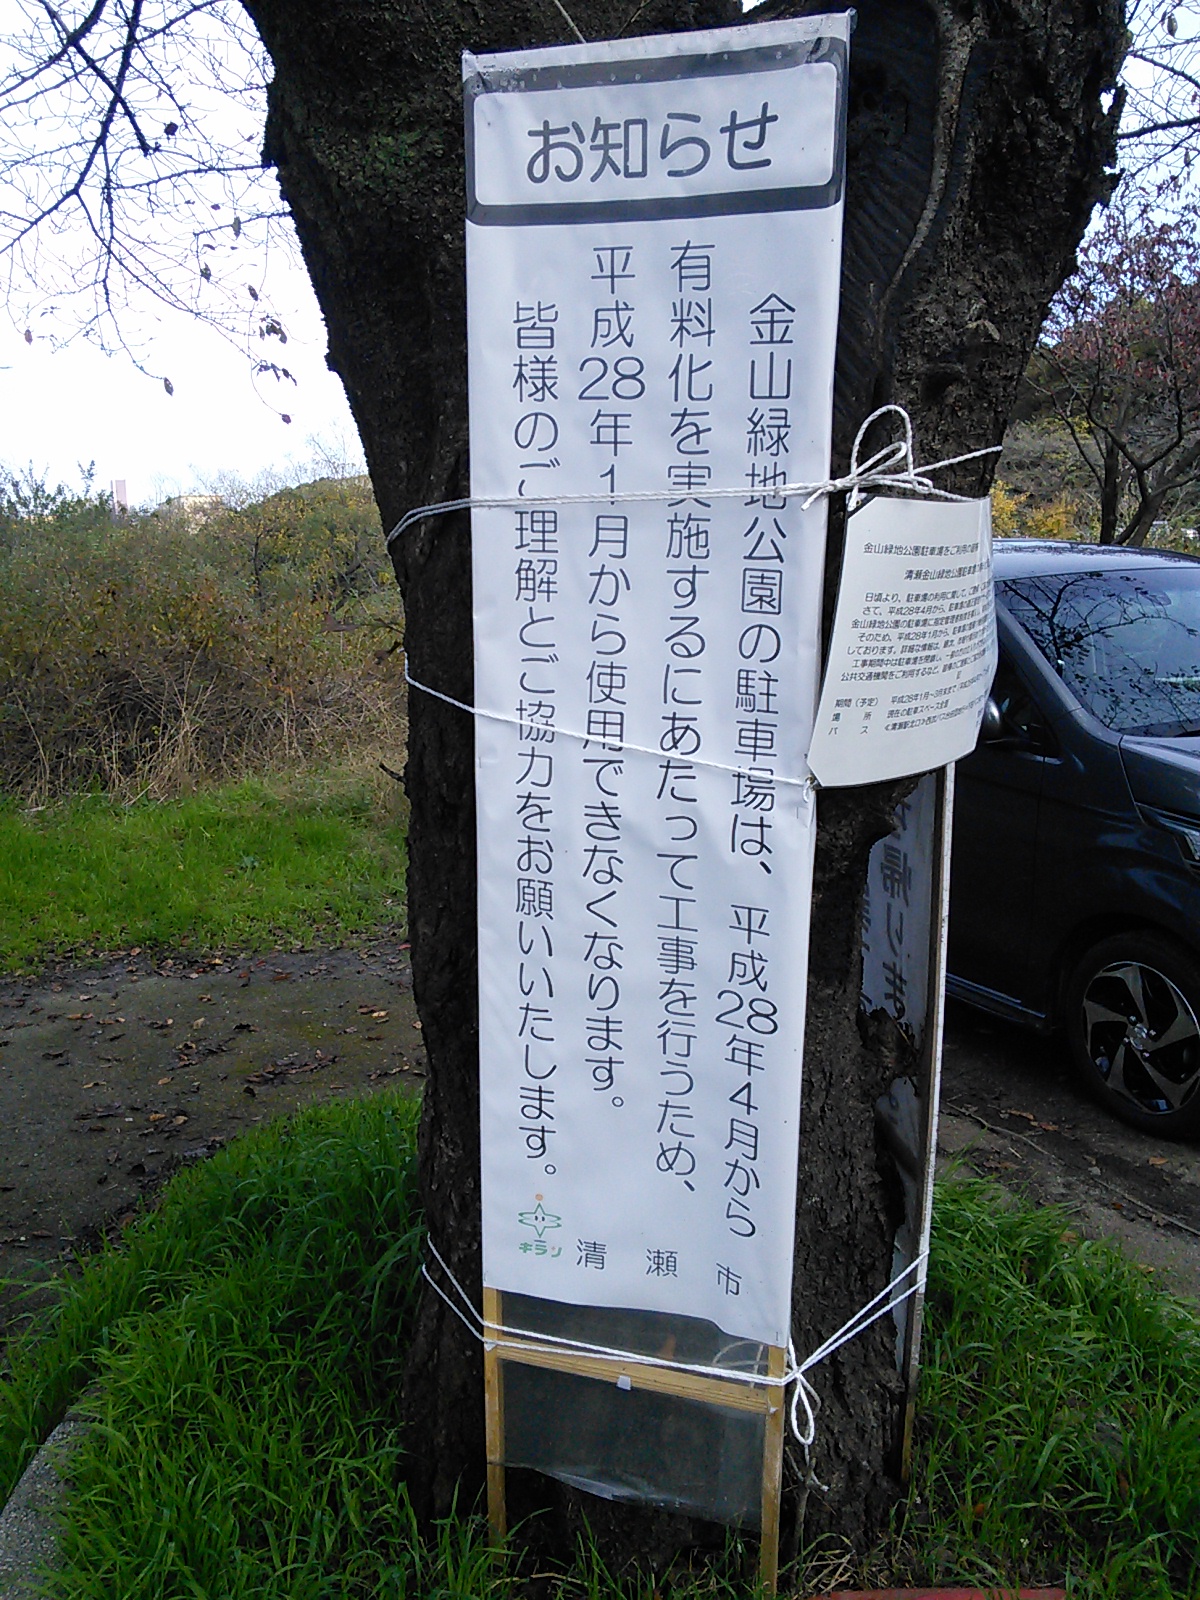 お知らせ
金山緑地公園の駐車場は、平成28年4月から
有料化を実施するにあたって工事を行うため、
平成28年1月から使用できなくなります。
皆様のご理解とご協力をお願いいたします。
キラリ
清瀬市
金山緑地公園駐車場をご利用の
清瀬金山緑地公園駐車場
日頃より、駐車場の利用に関して、
さて、平成28年4月から、駐車場の
金山緑地公園の駐車場に指定管理者
そのため、平成28年1月から、
しております。詳細な情報は、
工事期間中は駐車場を閉鎖し、
公共交通機関をご利用するなど、
記
期間(予定) 平成28年1月~3月末まで
場所 現在の駐車スペース全域
バス <清瀬駅北口>
帰り